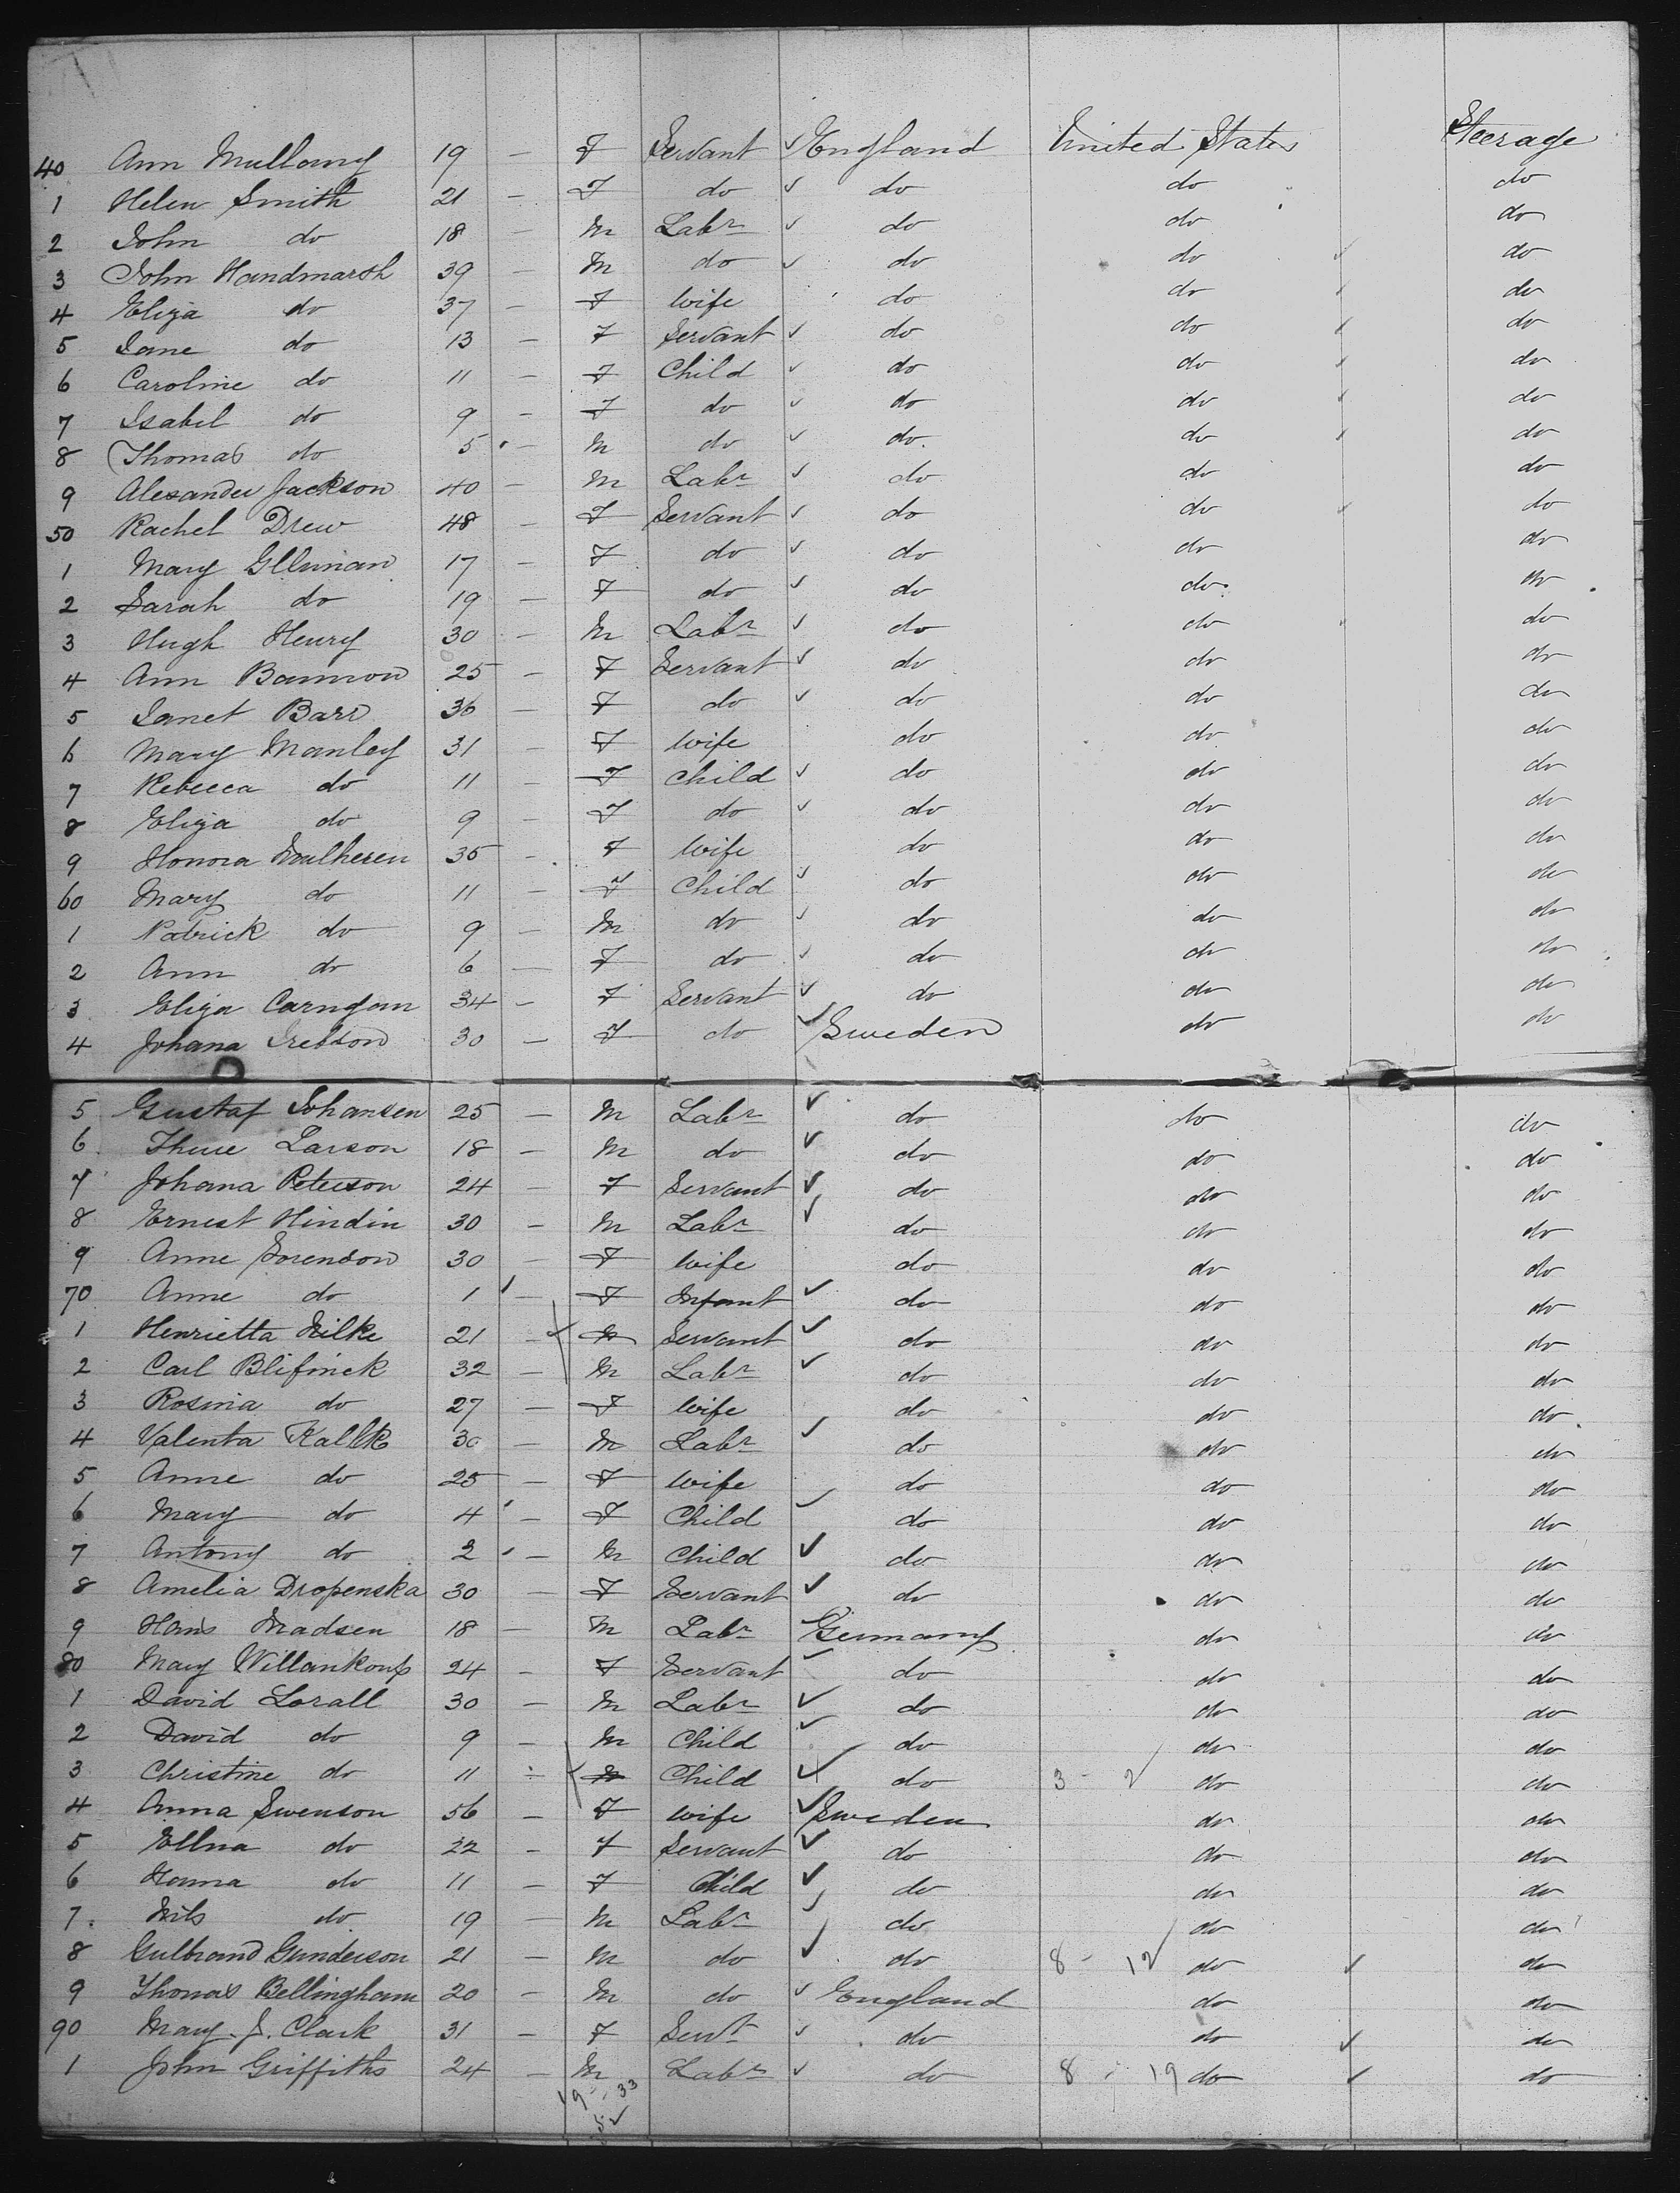 40 Ann Mullany 19 — F Servant ✓ England United States Steerage
1 Helen Smith 21 — F do ✓ do do do
2 John do 18 — M Labr ✓ do do do
3 John Handmarsh 39 — M do ✓ do do ✓ do
4 Eliza do 37 — F Wife do do ✓ do
5 Jane do 13 — F Servant ✓ do do ✓ do
6 Caroline do 11 — F Child ✓ do do ✓ do
7 Isabel do 9 — F do ✓ do do ✓ do
8 Thomas do 5 — M do ✓ do do ✓ do
9 Alexander Jackson 40 — M Labr ✓ do do do
50 Rachel Drew 48 — F Servant ✓ do do ✓ do
1 Mary Gllunan 17 — F do ✓ do do do
2 Sarah do 19 — F do ✓ do do do
3 Hugh Henry 30 — M Labr ✓ do do do
4 Ann Bannon 25 — F Servant ✓ do do do
5 Janet Barr 36 — F do ✓ do do do
6 Mary Manley 31 — F Wife do do do
7 Rebecca do 11 — F Child ✓ do do do
8 Eliza do 9 — F do ✓ do do do
9 Honora Mulheren 35 — F Wife do do do
60 Mary do 11 — F Child ✓ do do do
1 Patrick do 9 — M do ✓ do do do
2 Ann do 6 — F do ✓ do do do
3 Eliza 34 — F Servant ✓ do do do
4 Johana 30 — F do ✓ Sweden do do
5 Gustaf Johansen 25 — M Labr ✓ do do do
6 Thure Larson 18 — M do ✓ do do do
7 Johana Peterson 24 — F Servant ✓ do do do
8 Ernest Hindin 30 — M Labr ✓ do do do
9 Anne Sorenson 30 — F Wife do do do
70 Anne do 1 — F Infant ✓ do do do
1 Henrietta Nilke 21 — ✓ Servant ✓ do do do
2 Carl Blifinick 32 — M Labr ✓ do do do
3 Rosina do 27 — F Wife do do do
4 Valenta Kallk 30 — M Labr ✓ do do do
5 Anne do 25 — F Wife do do do
6 Mary do 4 — F Child ✓ do do do
7 Antony do 2 — M Child ✓ do do do
8 Amelia Dropenska 30 — F Servant ✓ do do do
9 Hans Madsen 18 — M Labr Germany do do
80 Mary Willankoup 24 — F Servant ✓ do do do
1 David Lorall 30 — M Labr ✓ do do do
2 David do 9 — M Child ✓ do do do
3 Christine do 11 — Child ✓ do 3 - 2 do do
4 Anna Swenson 56 — F Wife ✓ Sweden do do
5 Ellna do 22 — F Servant ✓ do do do
6 Hanna do 11 — F Child ✓ do do do
7. Nils do 19 — M Labr ✓ do do do
8 Gulbrand Gunderson 21 — M do ✓ do 8 - 12 do ✓ do
9 Thomas Bellingham 20 — M do ✓ England do do
90 Mary. J. Clark 31 — F Servt ✓ do do ✓ do
1 John Griffiths 24 — M Labr ✓ do 8 - 19 do ✓ do
19 - 33
52